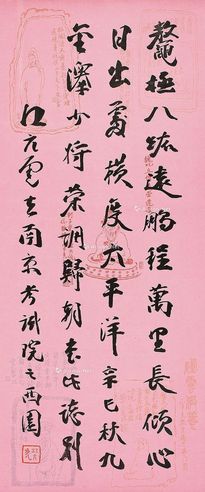 鼇極八紘遠鵬程萬里長傾心
日出處橫度太平洋辛巳秋九
澤少將榮調歸朝書此誌別
江亢虎在南京考試院之西園